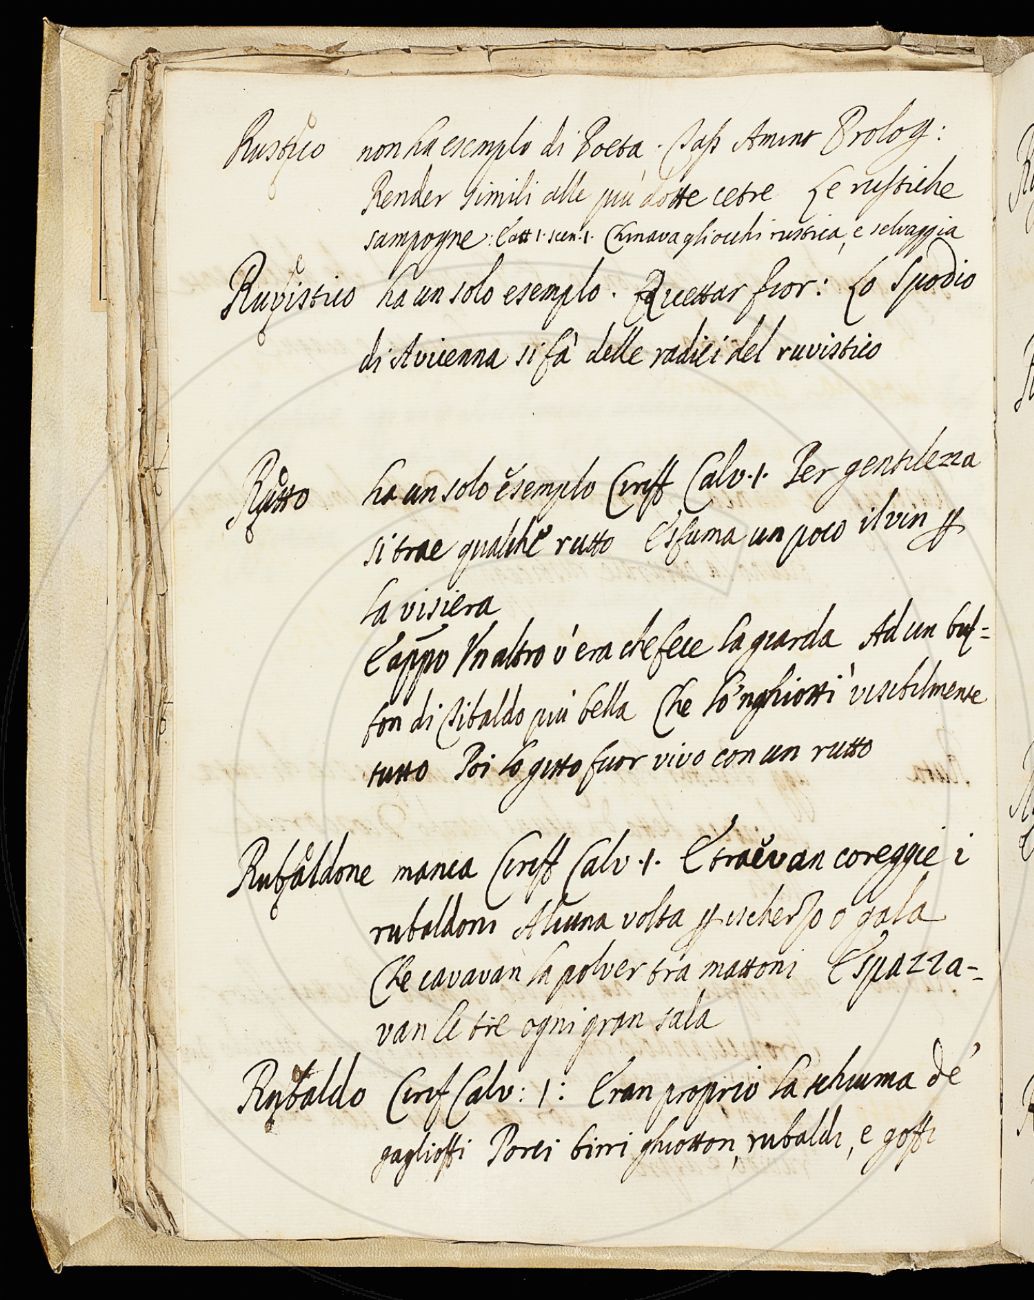 Rustico non ha esempio di Poeta. Tass Amint Prolog:
Render simili alle più dotte cetre Le rustiche
sampogne. E att. 1. scen. 1. Ch'inavagliocchi rustica, e selvaggia
Ruvistico ha un solo esempio. Ricettar fior: Lo Spodio
di Avicenna si fà delle radici del ruvistico
Rutto ha un solo esempio Ciriff Calv. 1. Per gentilezza
si trae qualche rutto E sfuma un poco il vin p
la visiera
E appo Un altro v'era che fece la guarda Ad un buf=
fon di Sibaldo più bella Che lo 'nghiottì visibilmente
tutto Poi lo gitto fuor vivo con un rutto
Rubaldone manca Ciriff Calv. 1. E traevan coreggie i
rubaldoni Alcuna volta p ischerzo o gala
Che cavavan la polver tra mattoni E spazza=
van le tre ogni gran sala
Rubaldo Cirif Calv: 1: Eran proprio la schiuma de'
gaglioffi Porci birri ghiotton, rubaldi, e goffi